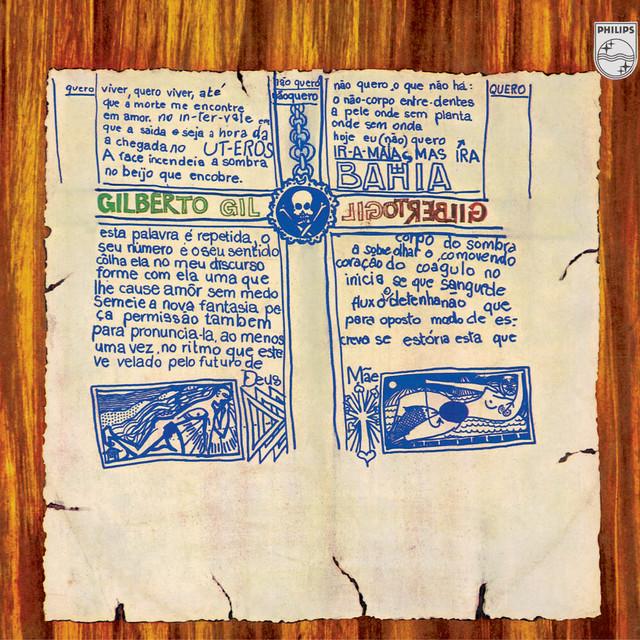 PHILIPS
quero
viver, quero viver, até
que a morte me encontre
em amor. no in-ter-vale em
que a saída e seja a hora da
a chegada no UT-EROS
A face incendeia a sombra
no beijo que encobre.
não quero
nãoquero
não quero o que não há:
o não-corpo entre-dentes
a pele onde sem planta
onde sem onda
hoje eu (não) quero
IR-A-MAIAS MAS IRA
BAHIA
QUERO
GILBERTO GIL
GILBERTO GIL
esta palavra é repetida, o
seu número é o seu sentido
colha ela no meu discurso
forme com ela uma que
lhe cause amor sem medo
Semeie a nova fantasia pe
ça permissão também
para pronuncia-la, ao menos
uma vez, no ritmo que este
ve velado pelo futuro de
Deus
corpo do sombra
a sobe olhar o comovendo
coração do coagulo no
inicia se que sangue de
fluxo detenha não que
para oposto modo de es-
crevo se estória esta que
Mãe